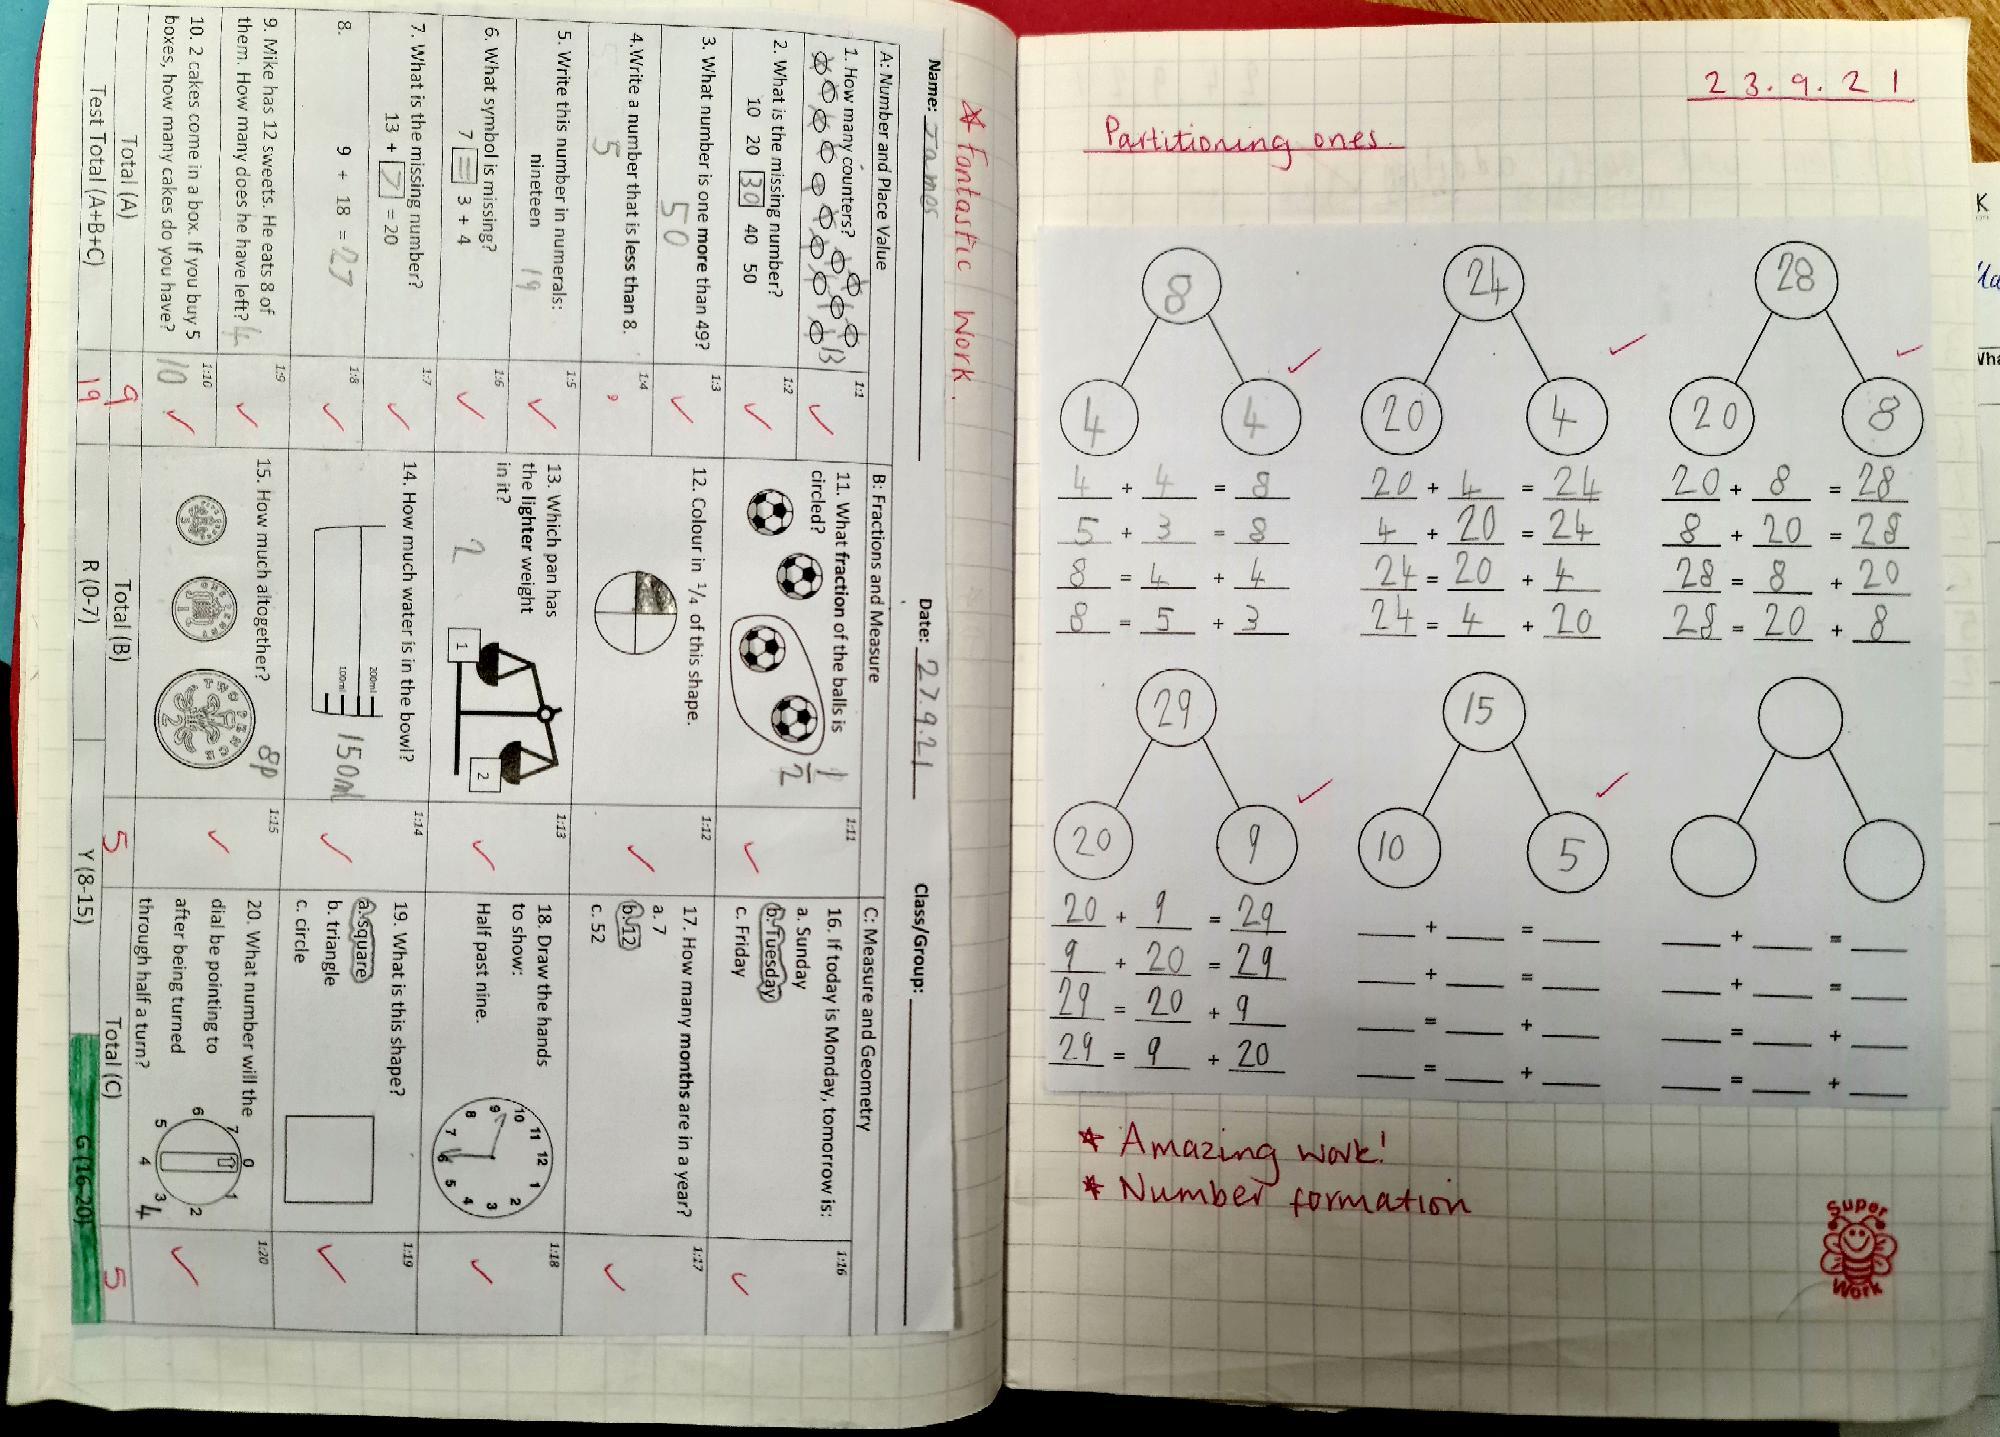 * Fantastic Work.
Name: James Date: 27.9.21 Class/Group:
A: Number and Place Value
1. How many counters?
13
1:1
2. What is the missing number?
10 20 30 40 50
1:2
3. What number is one more than 49?
50
1:3
4.Write a number that is less than 8.
5
1:4
5. Write this number in numerals:
nineteen 19
1:5
6. What symbol is missing?
7 = 3 + 4
1:6
7. What is the missing number?
13 + 7 = 20
1:7
8. 9 + 18 = 27
1:8
9. Mike has 12 sweets. He eats 8 of
them. How many does he have left? 4
1:9
10. 2 cakes come in a box. If you buy 5
boxes, how many cakes do you have? 10
1:10
Total (A) 9
B: Fractions and Measure
11. What fraction of the balls is
circled?
1/2
1:11
12. Colour in ¼ of this shape.
1:12
13. Which pan has
the lighter weight
in it?
2
1
2
1:13
14. How much water is in the bowl?
200ml
100ml
150ml
1:14
15. How much altogether?
8p
1:15
Total (B) 5
C: Measure and Geometry
16. If today is Monday, tomorrow is:
a. Sunday
b. Tuesday
c. Friday
1:16
17. How many months are in a year?
a. 7
b. 12
c. 52
1:17
18. Draw the hands
to show:
Half past nine.
12 1 2 3 4 5 6 7 8 9 10 11
1:18
19. What is this shape?
a. square
b. triangle
c. circle
1:19
20. What number will the
dial be pointing to
after being turned
through half a turn?
0 1 2 3 4 5 6 7
4
1:20
Total (C) 5
Test Total (A+B+C) 19 R (0-7) Y (8-15) G (16-20)
23.9.21
Partitioning ones.
8 24 28
4 4 20 4 20 8
4 + 4 = 8 20 + 4 = 24 20 + 8 = 28
5 + 3 = 8 4 + 20 = 24 8 + 20 = 28
8 = 4 + 4 24 = 20 + 4 28 = 8 + 20
8 = 5 + 3 24 = 4 + 20 28 = 20 + 8
29 15
20 9 10 5
20 + 9 = 29 + = + =
9 + 20 = 29 + = + =
29 = 20 + 9 = + = +
29 = 9 + 20 = + = +
* Amazing work!
* Number formation
Super
Work